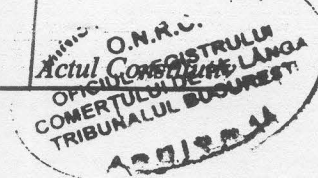 O.N.R.C.
Actul Constitutiv
OFICIUL REGISTRULUI
COMERȚULUI DE PE LÂNGA
TRIBUNALUL BUCUREȘTI